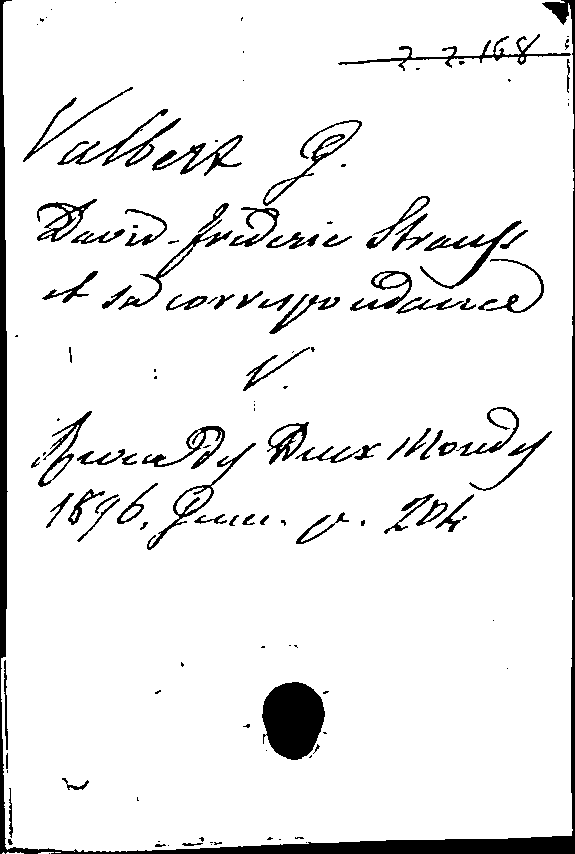 2. 2. 168
Valbert G.
David-Frédéric Strauss
et sa correspondance
V.
Revue des Deux Mondes
1896, Janu. p. 204